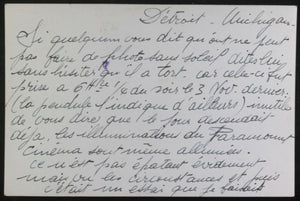 Détroit - Michigan.
Si quelqu'un vous dit qu'on ne peut
pas faire de photo sans soleil dites lui
sans hésiter qu'il a tort, car celle-ci fut
prise à 6h 1/4 du soir le 3 Nov. dernier
(la pendule l'indique d'ailleurs) inutile
de vous dire que le jour descendait
déjà, les illuminations du Paramount
cinéma sont même allumées.
ce n'est pas épatant évidement
mais vu les circonstances et puis
c'était un essai que je faisais